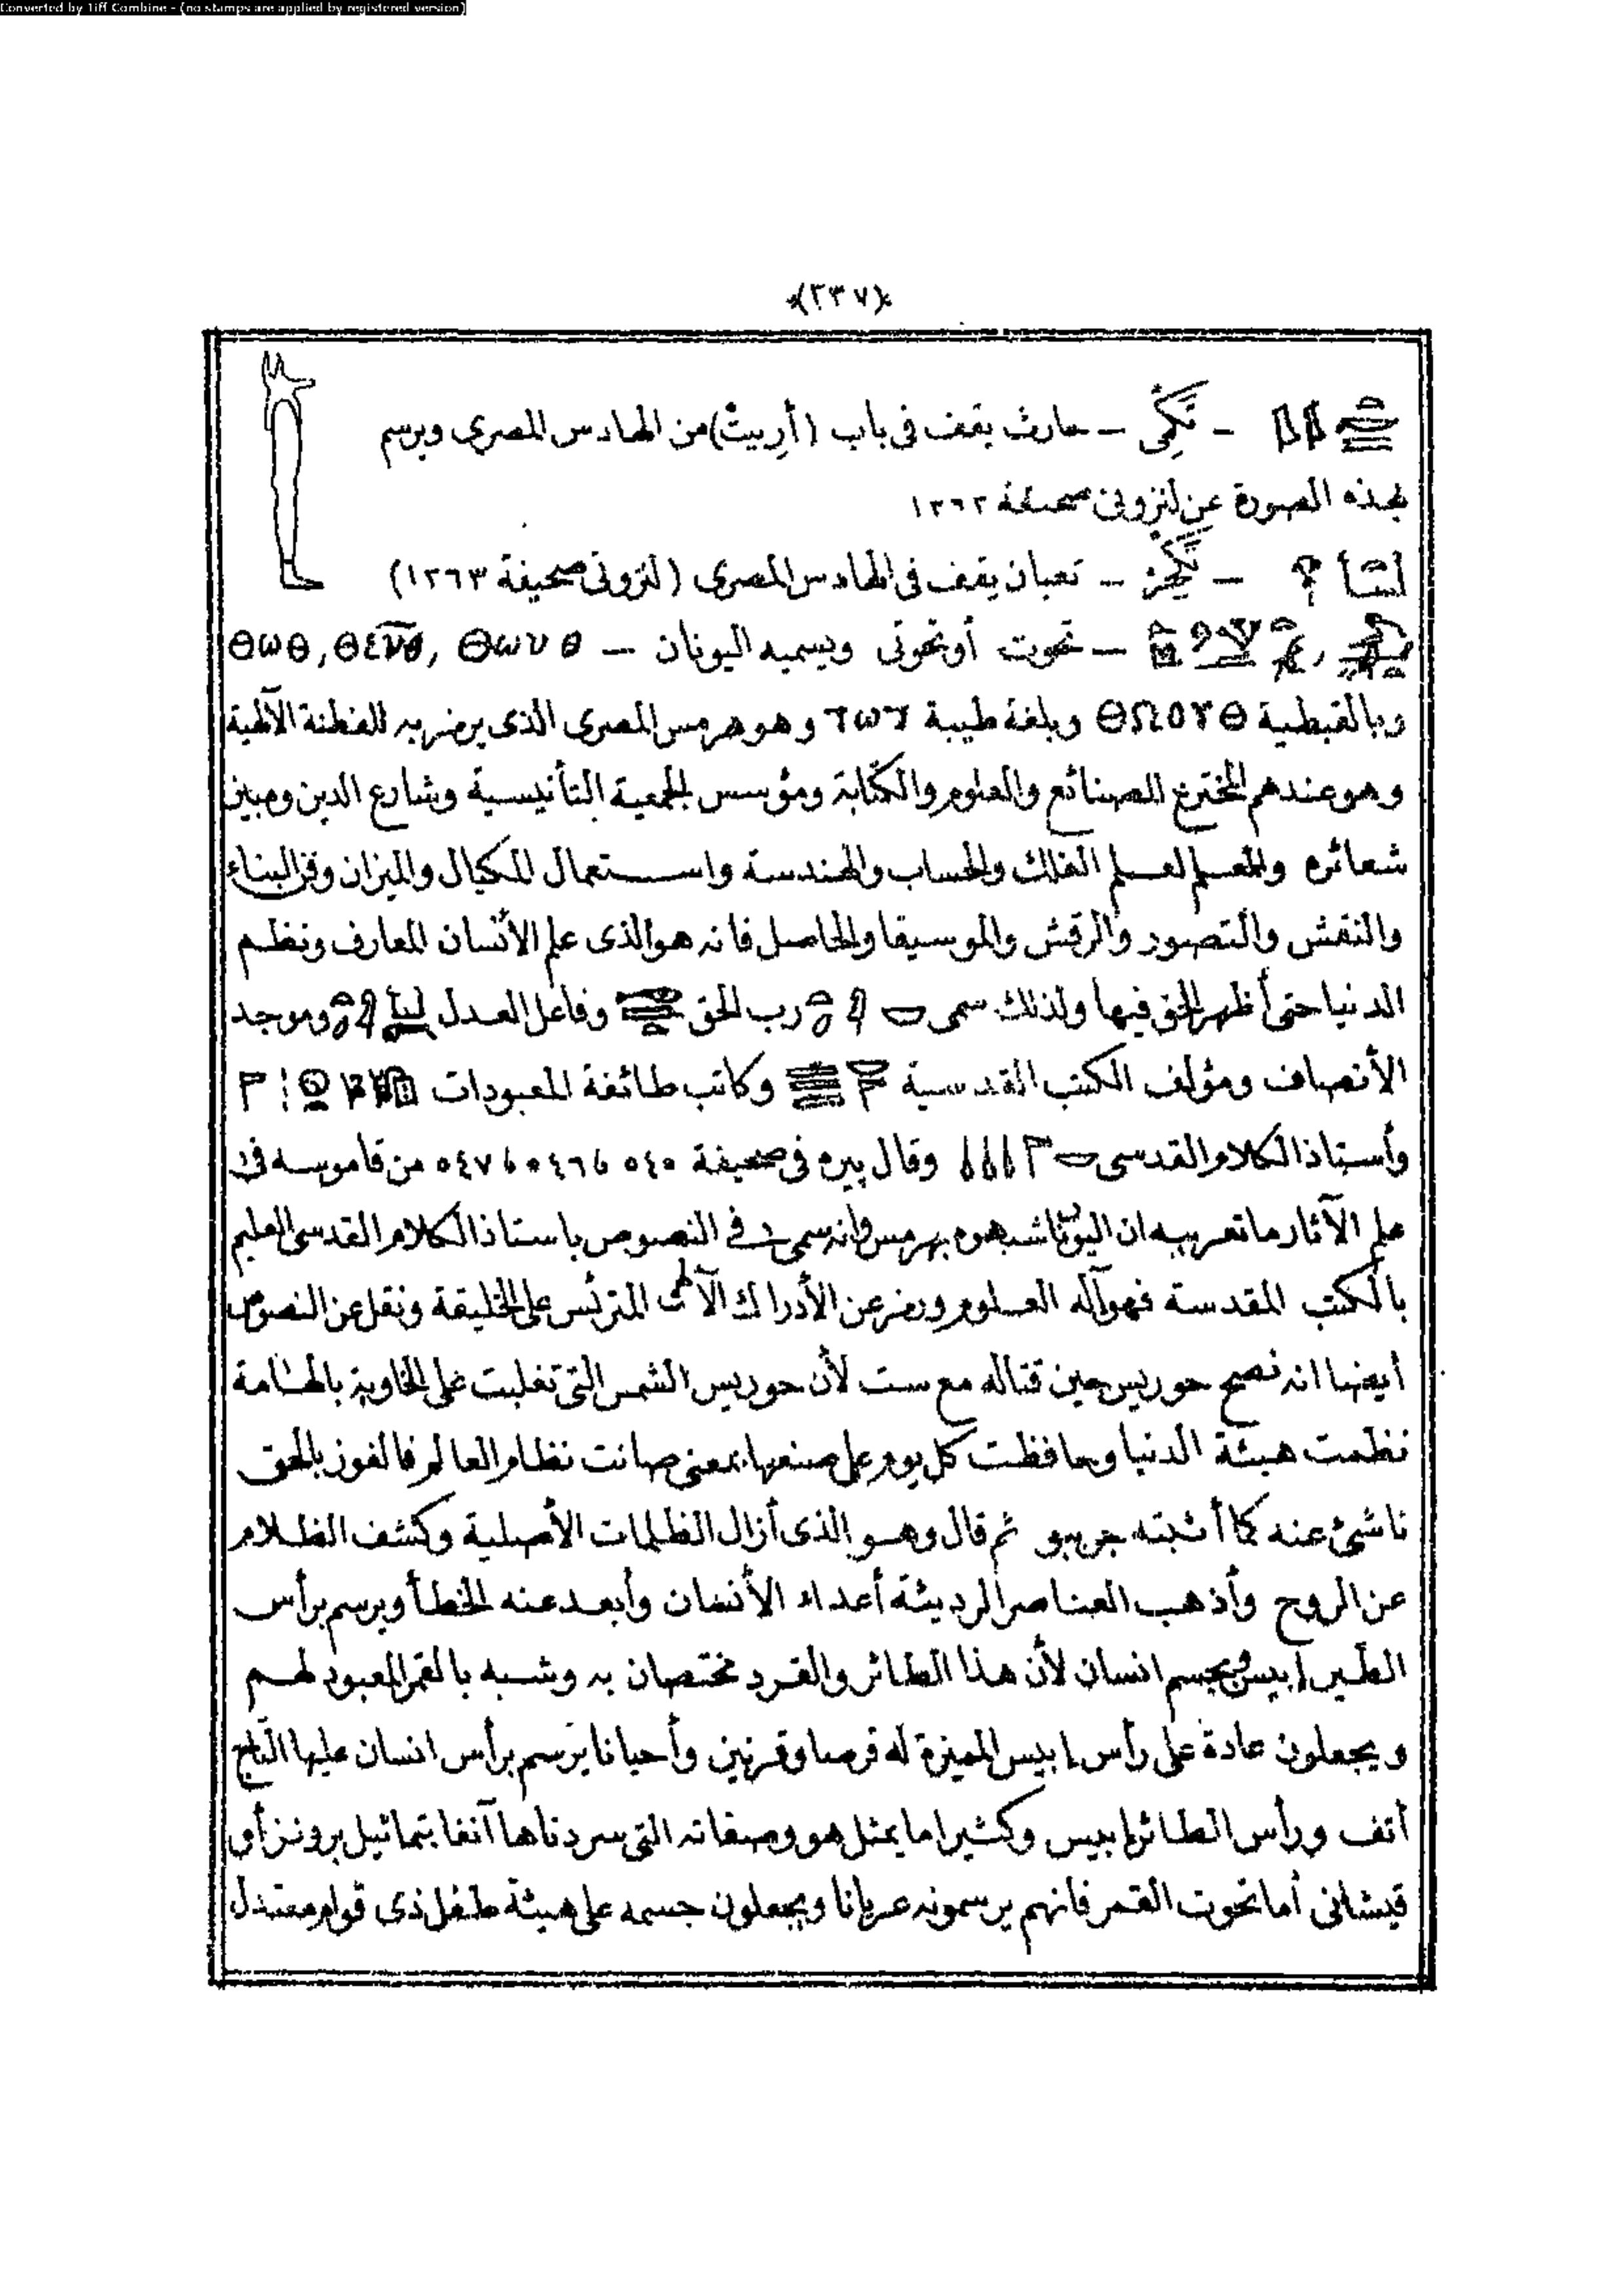 Converted by Tiff Combine - (no stamps are applied by registered version)
﴿٢٣٧﴾
– تَكِمِّى – حارث يقف فى باب (أَرِيتْ) من الهادس المصرى ويرسم
بهذه الصورة عن لنزونى صحيفة ١٢٦٢
– – ثعبان يقف فى الهادس المصرى (لنزونى صحيفة ١٢٦٣)
– تحوت أوتحوتى ويسميه اليونان – θωυθ ,θευθ ,θωθ
وبالقبطية ΘΩΟΥΘ وبلغة طيبة وهو هرمس المصرى الذى يرمز به للفطنة الآلهية
وهو عندهم المخترع للصنائع والعلوم والكتابة ومؤسس الجمعية التأنيسية وشارع الدين ومبين
شعائره والمعلم لعلم الفلك والحساب والهندسة واستعمال المكيال والميزان وفن البناء
والنقش والتصوير والرقش والموسيقا والحاصل فانه هو الذى علم الأنسان المعارف ونظم
الدنيا حتى أظهر الحق فيها ولذلك سمى رب الحق وفاعل العدل وموجد
الأنصاف ومؤلف الكتب القدسية وكاتب طائفة المعبودات
وأستاذ الكلام القدسى وقال پيره فى صحيفة ٥٤٥ ٥٤٦٦ ٥٤٧٦ من قاموسه فى
علم الآثار ما تعريبه ان اليونان شبهوه بهرمس وانه سمى فى النصوص باستاذ الكلام القدسى العليم
بالكتب المقدسة فهو آله العلوم ورمز عن الأدراك الآلهى المترئس على الخليقة ونقل عن النصوص
أيضا انه نصح حوريس حين قتاله مع ست لأن حوريس الشمس التى تغلبت على الخاوية بالهامة
نظمت هيئة الدنيا وحافظت كل يوم على صنعها بمعنى صانت نظام العالم فالفوز بالحق
ناشئ عنه كما أثبته جريبو ثم قال وهو الذى أزال الظلمات الأصلية وكشف الظلام
عن الروح وأذهب العناصر الرديئة أعداء الأنسان وأبعد عنه الخطأ ويرسم برأس
الطير إبيس وبجسم انسان لأن هذا الطائر والقرد مختصان به وشبه بالقمر المعبود لهم
ويجعلون عادة على رأس إبيس المميزة له قرصا وقرنين وأحيانا يرسم برأس انسان عليها التاج
أتف ورأس الطائر إبيس وكثيرا ما يمثل هو وصفاته التى سردناها آنفا بتماثيل برونز أو
قيشانى أما تحوت القمر فانهم يرسمونه عريانا ويجعلون جسمه على هيئة طفل ذى قوام معتدل